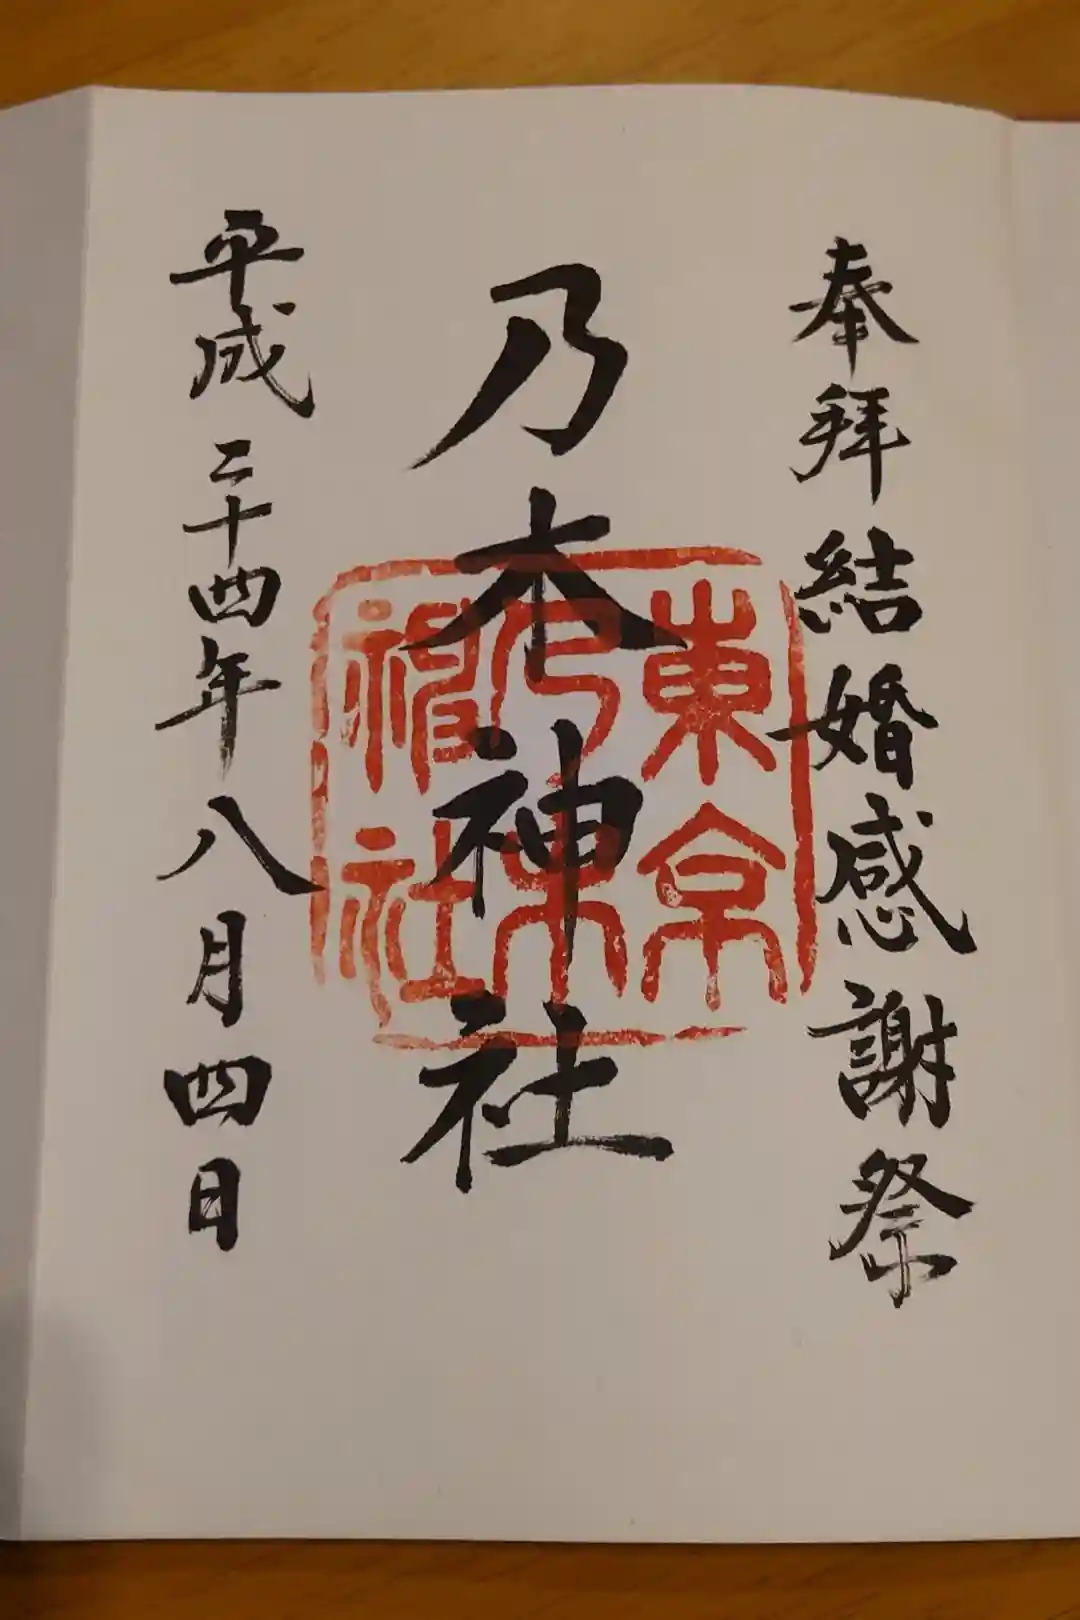 奉拝 結婚感謝祭
乃木神社
平成二十四年八月四日
東京
乃木
神社